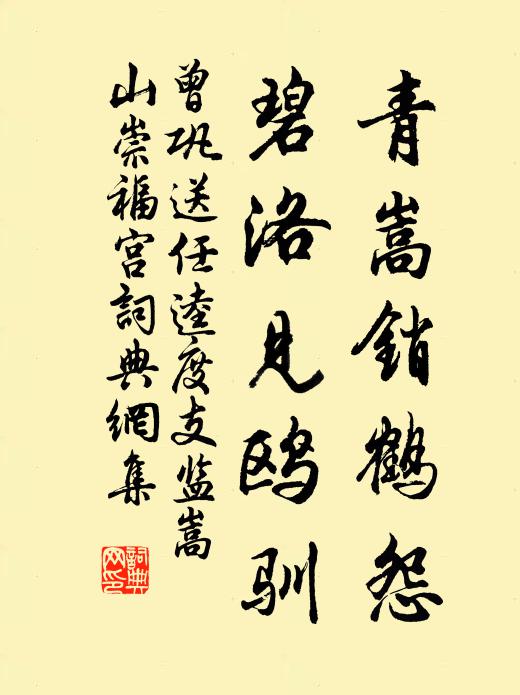 青嵩銷鹤怨
碧洛見鸥馴
曾巩送任逵度支监嵩
山崇福宫詞典網集
詞典网印